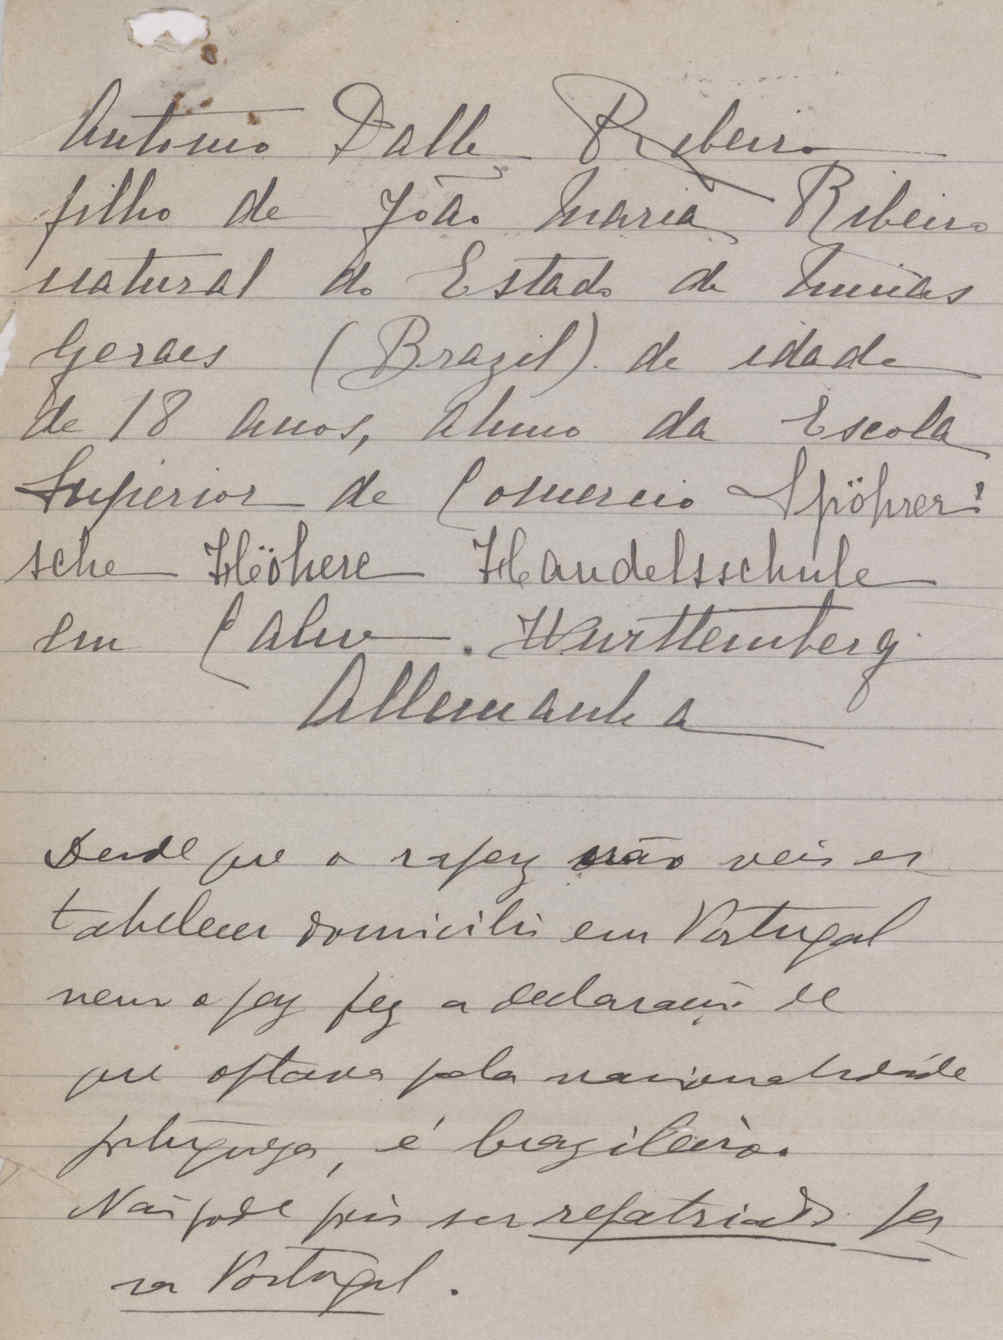 Antonio Dalle Ribeiro
filho de João Maria Ribeiro
natural do Estado de Minas
Geraes (Brazil) de idade
de 18 anos, alumno da Escola
Superior de Comercio Spöhrer'
sche Höhere Handelsschule
em Calw. Wurttemberg
Allemanha
Desde que o rapaz não veis es
tabelecer domicilio em Portugal
nem o pay fez a declaração de
que optava pela nacionalidade
portugueza, é brazileiro.
Não pode pois ser repatriado pa
ra Portugal.